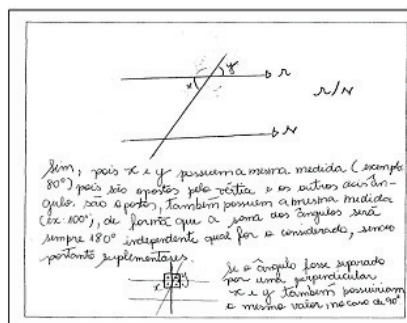 x y r
r//s
s
Sim, pois x e y possuem a mesma medida (exemplo
80°) pois são opostos pelo vértice e os outros dois ân-
gulos são opostos, também possuem a mesma medida
(ex: 100°), de forma que a soma dos ângulos será
sempre 180° independente qual for o considerado, sendo
portanto suplementares.
x y
Se o ângulo fosse separado
por uma perpendicular
x e y também possuiriam
o mesmo valor, no caso de 90°